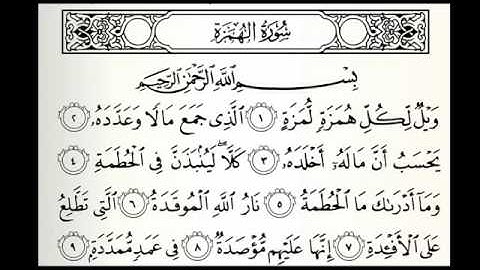 سُورَةُ الهُمَزَةِ
بِسْمِ اللَّهِ الرَّحْمَٰنِ الرَّحِيمِ
وَيْلٌ لِّكُلِّ هُمَزَةٍ لُّمَزَةٍ ١ الَّذِى جَمَعَ مَالًا وَعَدَّدَهُۥ ٢
يَحْسَبُ أَنَّ مَالَهُۥٓ أَخْلَدَهُۥ ٣ كَلَّا ۖ لَيُنۢبَذَنَّ فِى الْحُطَمَةِ ٤
وَمَآ أَدْرَىٰكَ مَا الْحُطَمَةُ ٥ نَارُ اللَّهِ الْمُوقَدَةُ ٦ الَّتِى تَطَّلِعُ
عَلَى الْأَفْـِٔدَةِ ٧ إِنَّهَا عَلَيْهِم مُّؤْصَدَةٌ ٨ فِى عَمَدٍ مُّمَدَّدَةٍۭ ٩